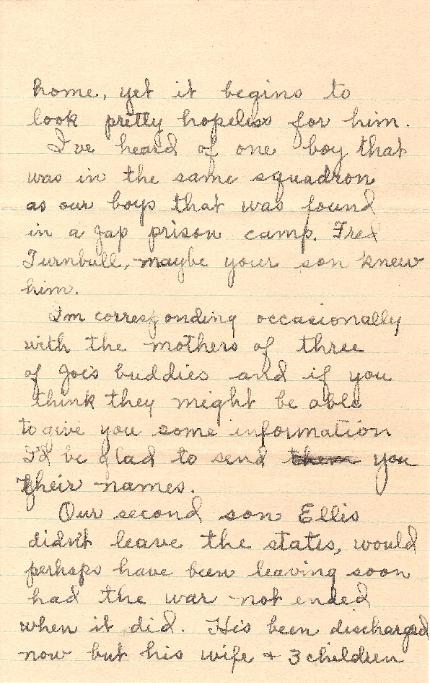 home, yet it begins to
look pretty hopeless for him.
I've heard of one boy that
was in the same squadron
as our boys that was found
in a Jap prison camp. Fred
Turnbull, maybe your son knew
him.
I'm corresponding occasionally
with the mothers of three
of Joe's buddies and if you
think they might be able
to give you some information
I'd be glad to send them you
their names.
Our second son Ellis
didn't leave the states, would
perhaps have been leaving soon
had the war not ended
when it did. He's been discharged
now but his wife + 3 children